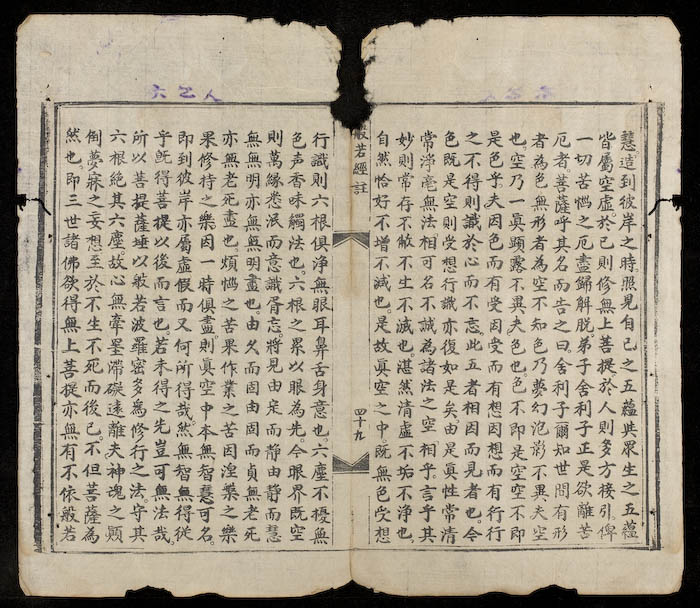 慧造到彼岸之時照見自己之五蘊與眾生之五蘊
皆屬空虛於已則修無上菩提於人則多方接引俾
一切苦惱之厄盡歸解脫弟子舍利子正是欲離苦
厄者菩薩呼其名而告之曰舍利子爾知世間有形
者為色無形者為空不知色乃夢幻泡影不異夫空
也空乃一真顕露不異夫色也色不即是空空不即
是色乎夫因色而有受因受而有想因想而有行行
之不得則識於心而不忘此五者相因而見者也今
色既是空則受想行識亦復如是矣由是真性常清
常淨毫無法相可名不誠為諸法之空相乎言乎其
妙則常存不敝不生不滅也湛然清虛不垢不净也
自然恰好不增不減也是故真空之中既無色受想
般若經註
四十九
行識則六根俱淨無眼耳鼻舌身意也六塵不擾無
色声香味觸法也六根之累以眼為先今眼界既空
則萬緣悉泯而意識胥忘將見由定而靜由靜而慧
無無明亦無無明盡也由久而固由固而貞無老死
亦無老死盡也煩惱之苦果作業之苦因湼槃之樂
果修持之樂因一時俱盡則真空中本無智慧可名
即到彼岸亦屬虛假而又何所得哉然無智無得從
乎既得菩提以後而言也若未得之先豈可無法哉
所以菩提薩埵以般若波羅密多為修行之法守其
六根絕其六塵故心無牽罣滯礙遠離夫神魂之顛
倒夢寐之妄想至於不生不死而後已不但菩薩為
然也即三世諸佛欲得無上菩提亦無有不依般若